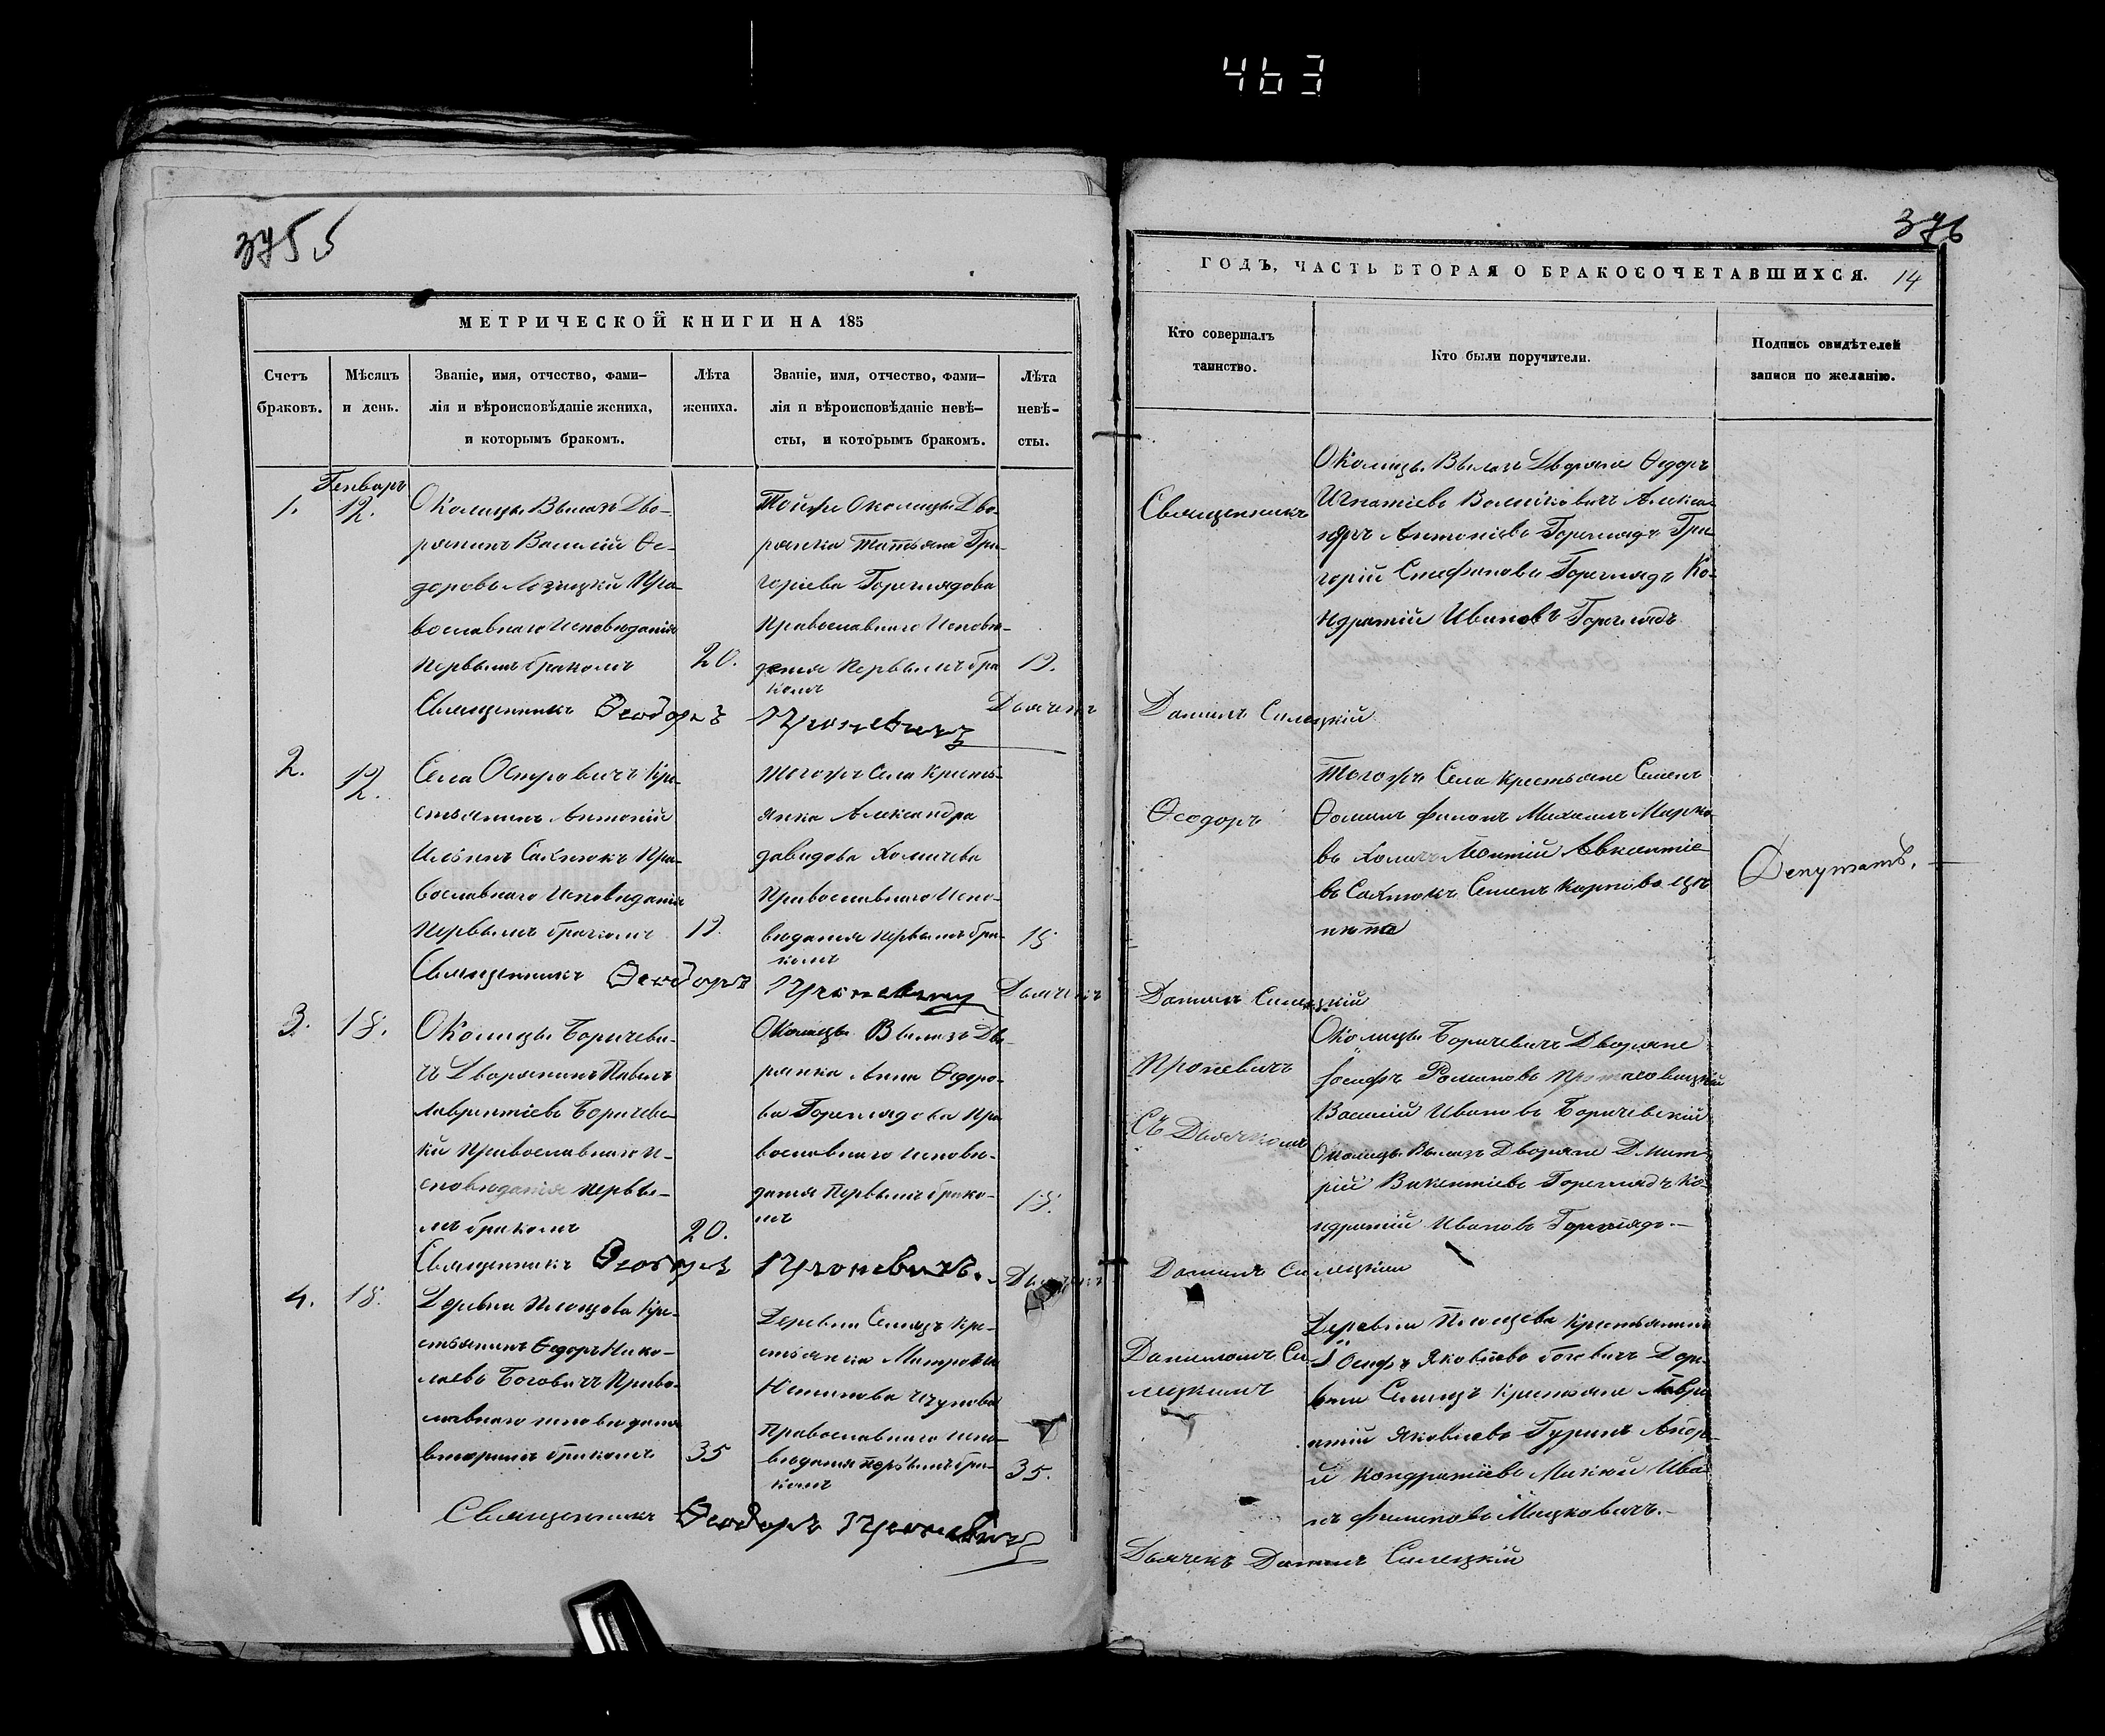 463
375 5
МЕТРИЧЕСКОЙ КНИГИ НА 185
Счетъ браковъ.
Мѣсяцъ и день.
Званіе, имя, отчество, фами-
лія и вѣроисповѣданіе жениха,
и которымъ бракомъ.
Лѣта жениха.
Званіе, имя, отчество, фами-
лія и вѣроисповѣданіе невѣ-
сты, и которымъ бракомъ.
Лѣта невѣ-
сты.
1.
Генварь
12.
Околицы Вылазъ Дво-
рянинъ Василій Ѳе-
доровъ Лозицкій Пра
вославнаго Исповѣданія
Первымъ бракомъ
20.
Тойже Околицы Дво-
рянка Татьяна Гри-
горіева Гореглядова
Православнаго Исповѣ-
данія Первымъ бра
комъ
19.
Священникъ Ѳеодоръ Проневичъ
Дьячекъ Даниилъ Силецкій
2.
12.
Села Островичъ Кре-
стьянинъ Антоній
Ильинъ Сахнюкъ Пра-
вославнаго Исповѣданія
Первымъ бракомъ
19.
Тогожъ Села Кресть-
янка Александра
Давидова Хомичева
Православнаго Испо-
вѣданія Первымъ бра-
комъ
18
Священникъ Ѳеодоръ Проневичъ
Дьячекъ Даниилъ Силецкій
3.
18.
Околицы Боричеви-
чъ Дворянинъ Павелъ
Лаврентіевъ Боричевс-
кій Православнаго И-
сповѣданія Первы-
мъ бракомъ
20.
Околицы Вылазъ Дво-
рянка Анна Ѳедоро-
ва Гореглядова Пра
вославнаго Исповѣ-
данія Первымъ брако-
мъ
18.
Священникъ Ѳеодоръ Проневичъ.
Дьячекъ Даниилъ Силецкій
4.
18.
Деревни Площева Кре-
стьянинъ Ѳедоръ Нико-
лаевъ Боговичъ Правос-
лавнаго исповѣданія
вторымъ бракомъ
35
Деревни Семиць Кре-
стьянка
Православнаго Испо-
вѣданія первымъ бра-
комъ
35.
Священникъ Ѳеодоръ Проневичъ
376
ГОДЪ, ЧАСТЬ ВТОРАЯ О БРАКОСОЧЕТАВШИХСЯ. 14
Кто совершалъ
таинство.
Кто были поручители.
Подпись свидѣтелей
записи по желанію.
Священникъ
Ѳеодоръ
Проневичъ
Съ Дьячкомъ
Данииломъ Си-
лецкимъ
Околицы Вылазъ Дворяне Ѳедоръ
Игнатіевъ Алекса-
ндръ Антоніевъ Гореглядъ Гри-
горій Стефановъ Гореглядъ Ко-
ндратій Ивановъ Гореглядъ
Тогожъ Села Крестьяне Семенъ
Михаилъ Марко-
въ Хомичъ Леонтій Авксентіе-
въ Сахнюкъ Семенъ Карповъ
Околицы Боричевичъ Дворяне
Іосифъ Романовъ Протасовицкій
Василій Ивановъ Боричевскій
Околицы Вылазъ Дворяне Дмит-
рій Викентіевъ Гореглядъ Ко-
ндратій Ивановъ Гореглядъ.-
Деревни Площева Крестьянинъ
Іосифъ Яковлевъ Боговичъ Дере-
вни Семиць Крестьяне Лавре
нтій Яковлевъ Гуринъ Андре-
й Кондратіевъ Ива
нъ Филиповъ Мицковичъ.-
Депутатъ.
Дьячекъ Даниилъ Силецкій